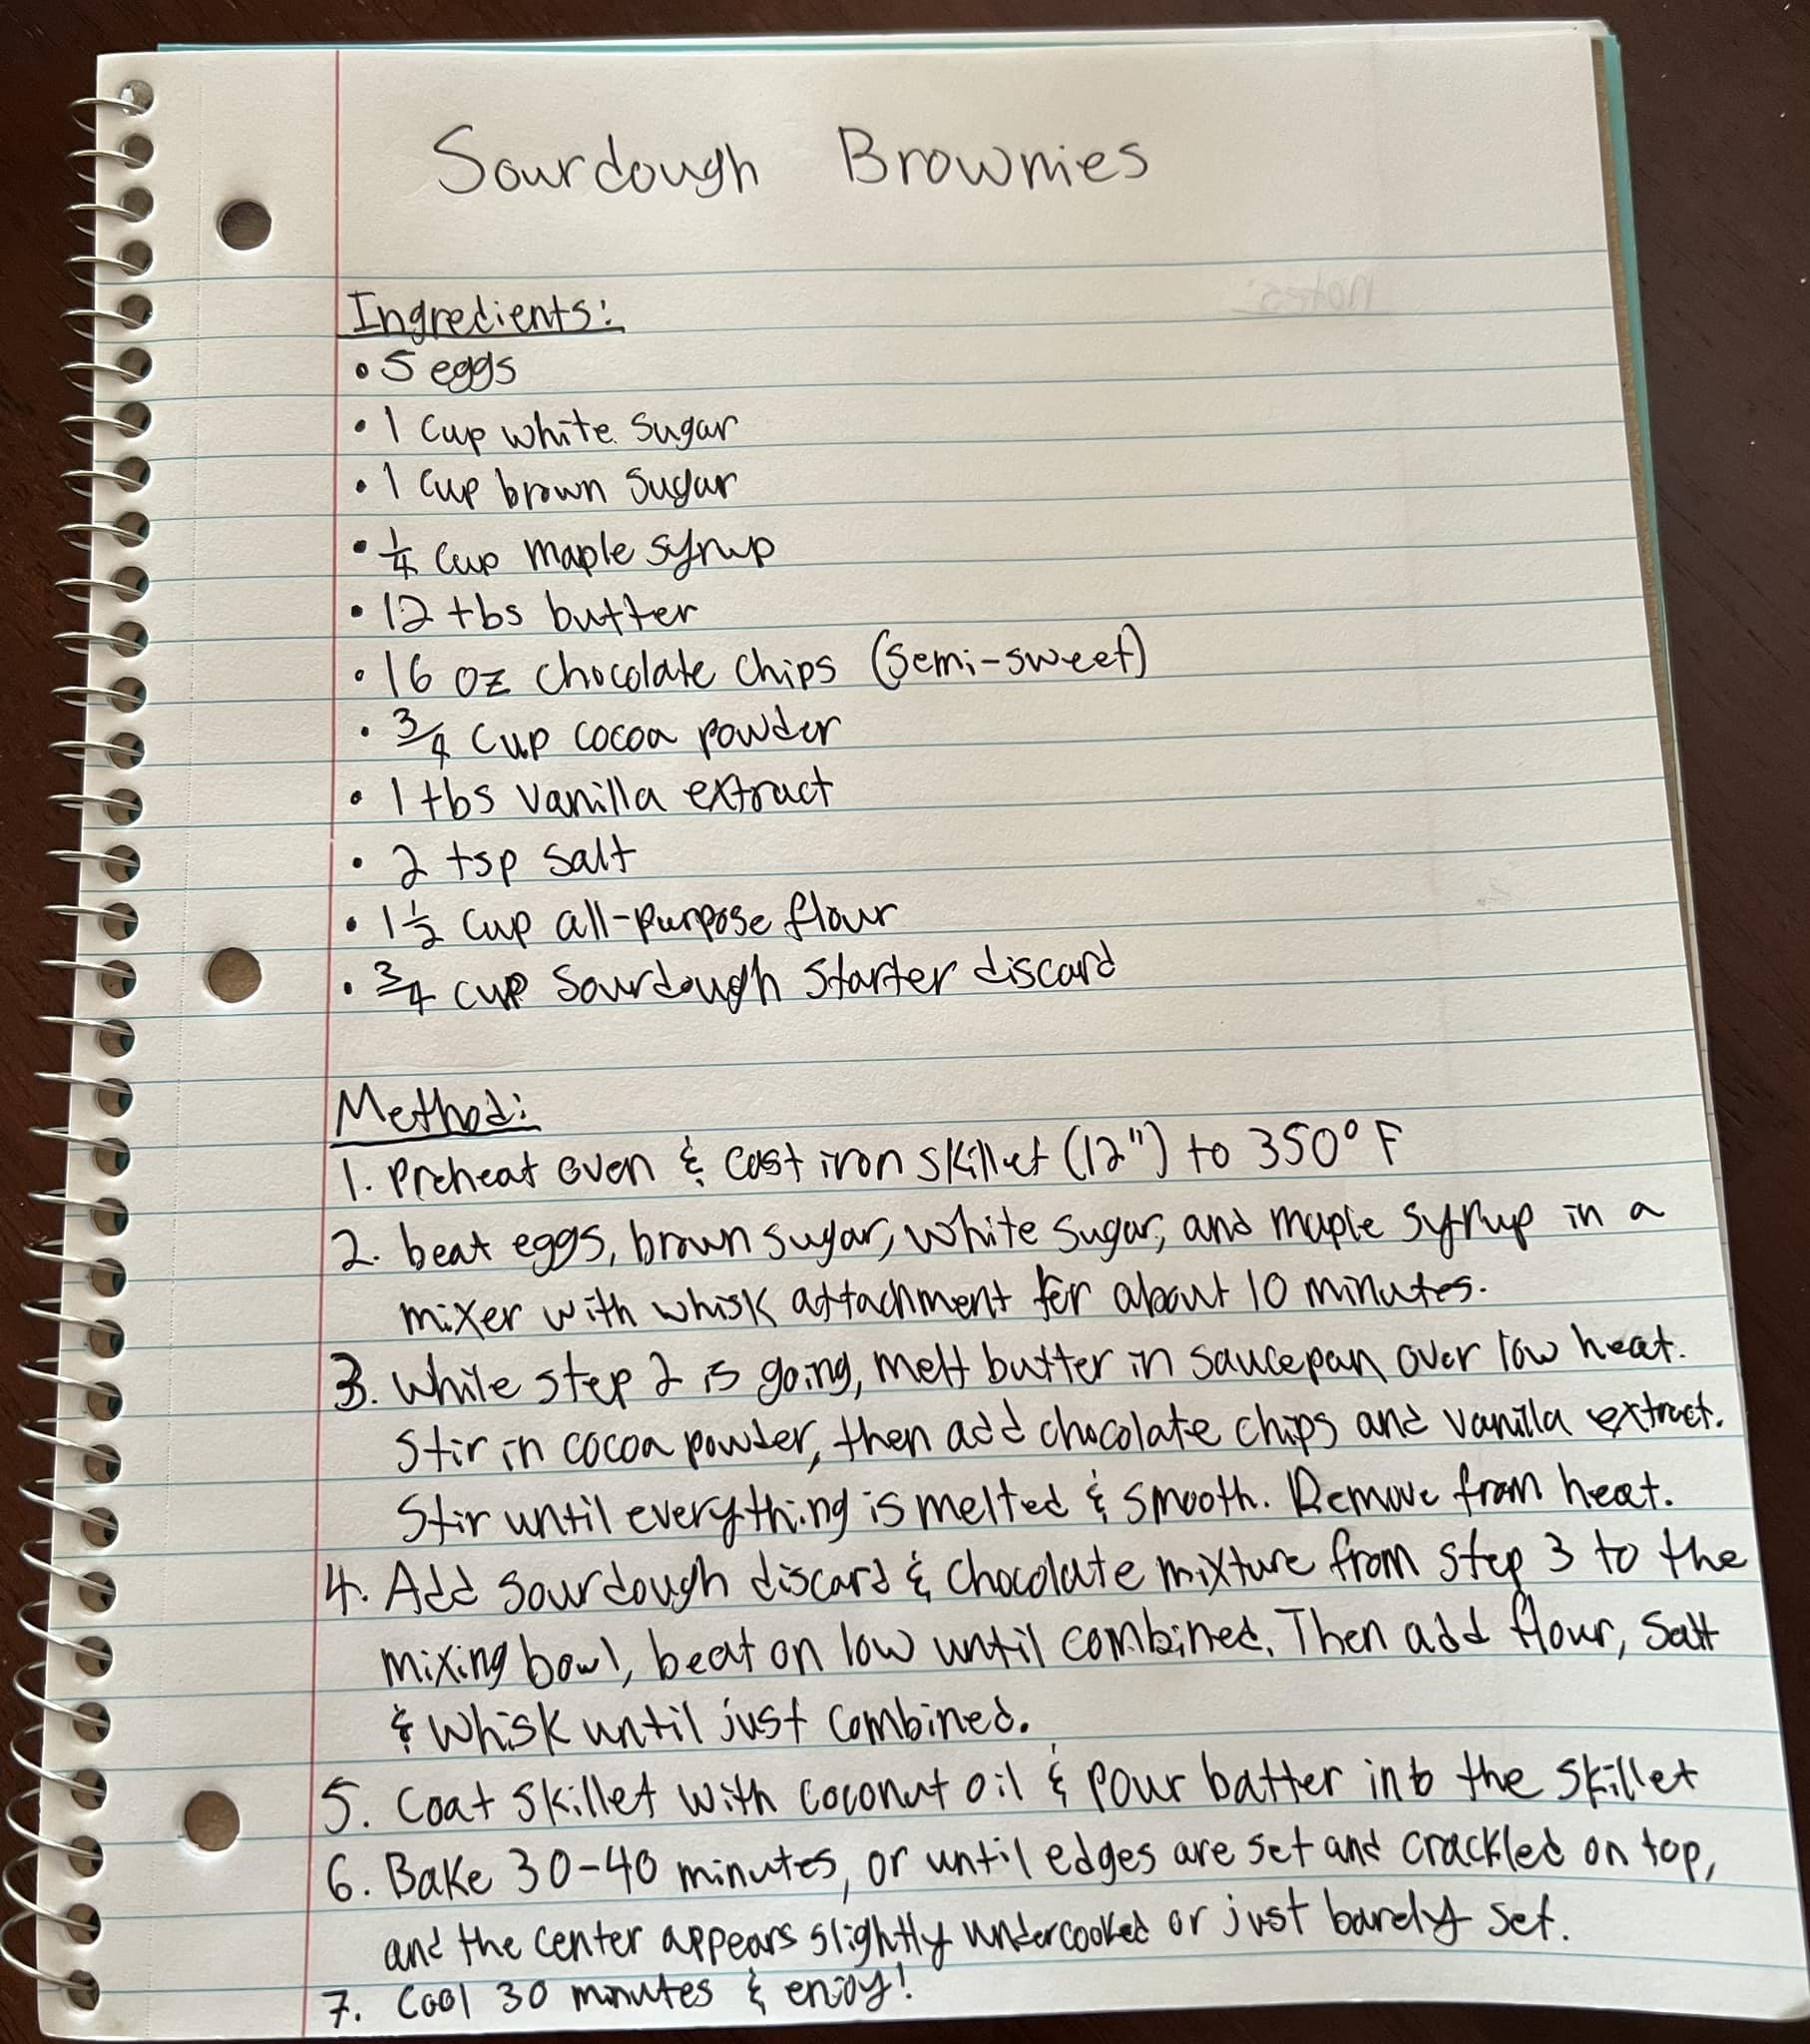 Sourdough Brownies
Notes:
Ingredients:
• 5 eggs
• 1 cup white sugar
• 1 cup brown sugar
• 1/4 cup maple syrup
• 12 tbs butter
• 16 oz chocolate chips (semi-sweet)
• 3/4 cup cocoa powder
• 1 tbs vanilla extract
• 2 tsp salt
• 1 1/2 cup all-purpose flour
• 3/4 cup sourdough starter discard
Method:
1. Preheat oven & cast iron skillet (12") to 350° F
2. beat eggs, brown sugar, white sugar, and maple syrup in a
mixer with whisk attachment for about 10 minutes.
3. While step 2 is going, melt butter in saucepan over low heat.
Stir in cocoa powder, then add chocolate chips and vanilla extract.
Stir until everything is melted & smooth. Remove from heat.
4. Add sourdough discard & chocolate mixture from step 3 to the
mixing bowl, beat on low until combined. Then add flour, salt
& whisk until just combined.
5. Coat skillet with coconut oil & pour batter into the skillet
6. Bake 30-40 minutes, or until edges are set and crackled on top,
and the center appears slightly undercooked or just barely set.
7. Cool 30 minutes & enjoy!